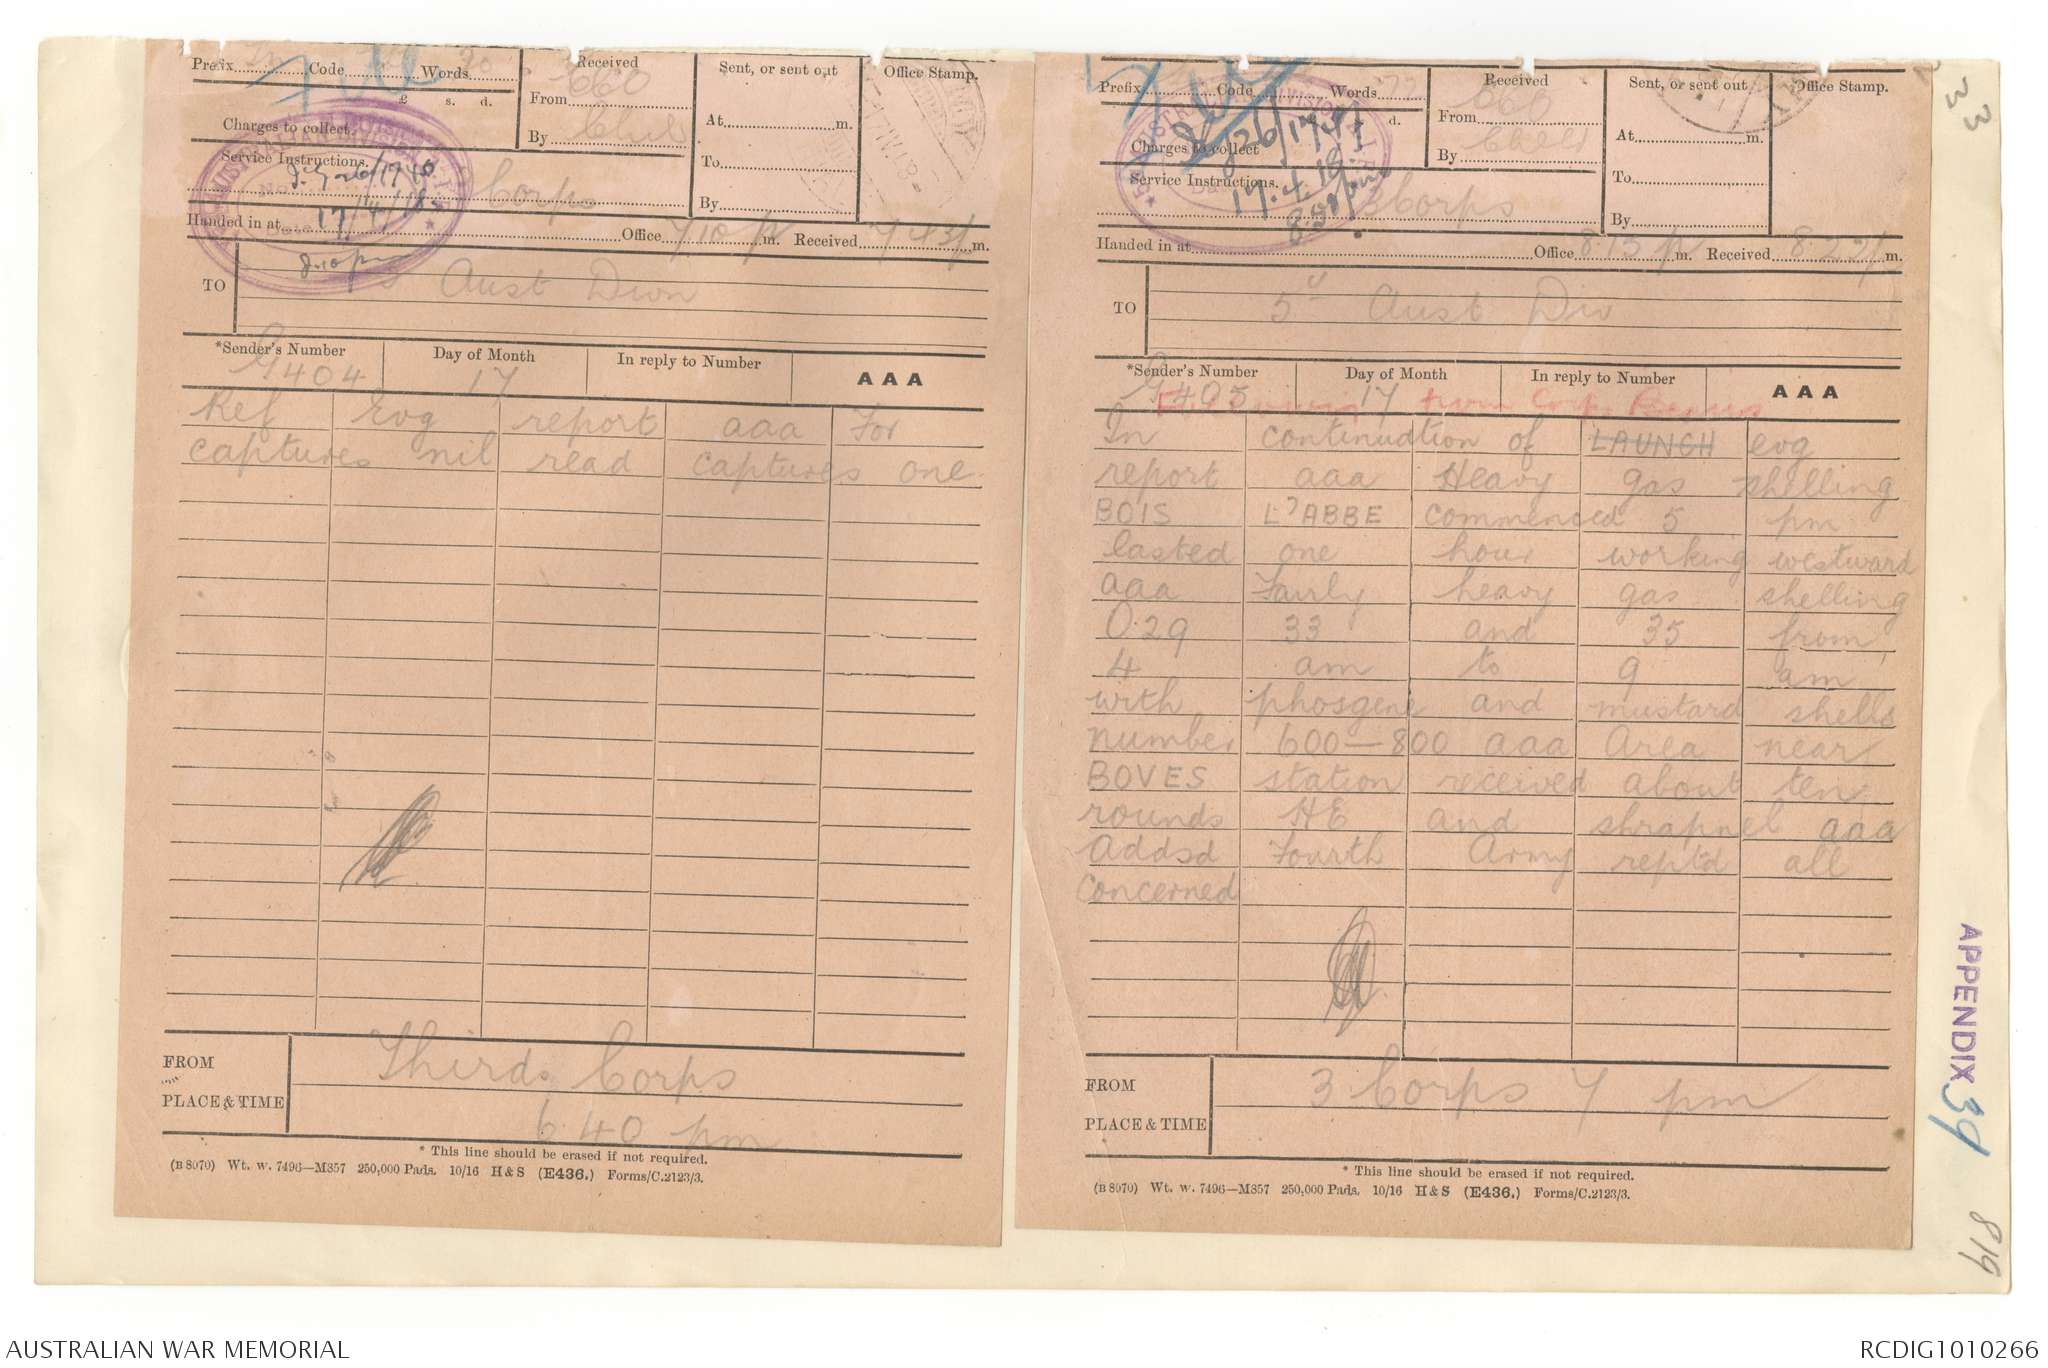 Prefix Code Words
£ s. d.
Charges to collect
Service Instructions.
Received
From
By
Sent, or sent out
At m.
To
By
Office Stamp.
17/4/18
Corps
Handed in at Office 7 10 p m. Received 7 43 p m.
TO
5 Aust Divn
*Sender's Number Day of Month In reply to Number AAA
G404 17
Ref Evg report aaa For
captures nil read captures one
FROM
PLACE & TIME
Third Corps
6 40 pm
* This line should be erased if not required.
(B 8070) Wt. W. 7496—M857 250,000 Pads. 10/16 H & S (E436.) Forms/C.2123/3.
Prefix Code Words
d.
Charges to collect
Service Instructions.
Received
From
By
Sent, or sent out
At m.
To
By
Office Stamp.
17.4.18.
8.50pm
3 Corps
Handed in at Office 8.15 p m. Received 8.22 p m.
TO
5 Aust Div
*Sender's Number Day of Month In reply to Number AAA
G405 17
from Corps
In continuation of LAUNCH evg
report aaa Heavy gas shelling
BOIS L'ABBE commenced 5 pm
lasted one hour working westward
aaa Fairly heavy gas shelling
O.29 33 and 35 from
4 am to 9 am
with phosgene and mustard shells
number 600-800 aaa Area near
BOVES station received about ten
rounds HE and shrapnel aaa
Addsd Fourth Army reptd all
concerned
FROM
PLACE & TIME
3 Corps 7 pm
* This line should be erased if not required.
(B 8070) Wt. W. 7496—M857 250,000 Pads. 10/16 H & S (E436.) Forms/C.2123/3.
33
APPENDIX 39
819
AUSTRALIAN WAR MEMORIAL
RCDIG1010266